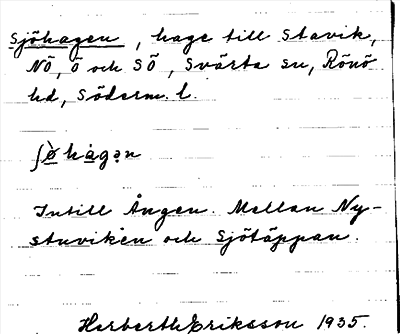 Sjöhagen, hage till Stavik,
NÖ, Ö och SÖ, Svärta sn, Rönö
hd, Söderm. l.
ʃø̀hàgən
Intill Ängen. Mellan Ny-
stuviken och Sjötäppan.
Herberth Eriksson 1935.